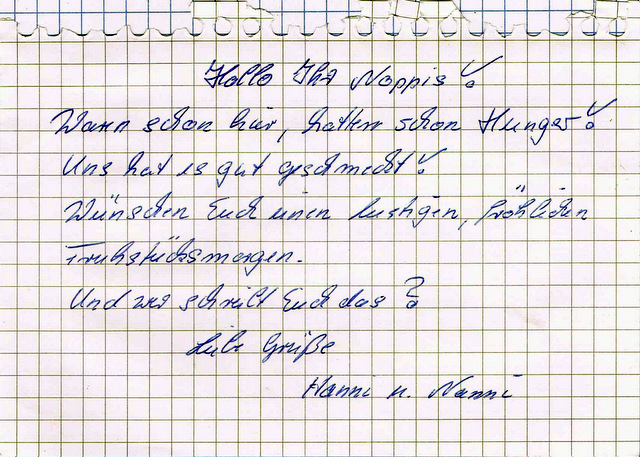 Hallo Ihr Noppis!
Waren schon hier, hatten schon Hunger!
Uns hat es gut geschmeckt!
Wünschen Euch einen lustigen, fröhlichen
Frühstücksmorgen.
Und wer schreibt Euch das?
Liebe Grüße
Hanni u. Nanni